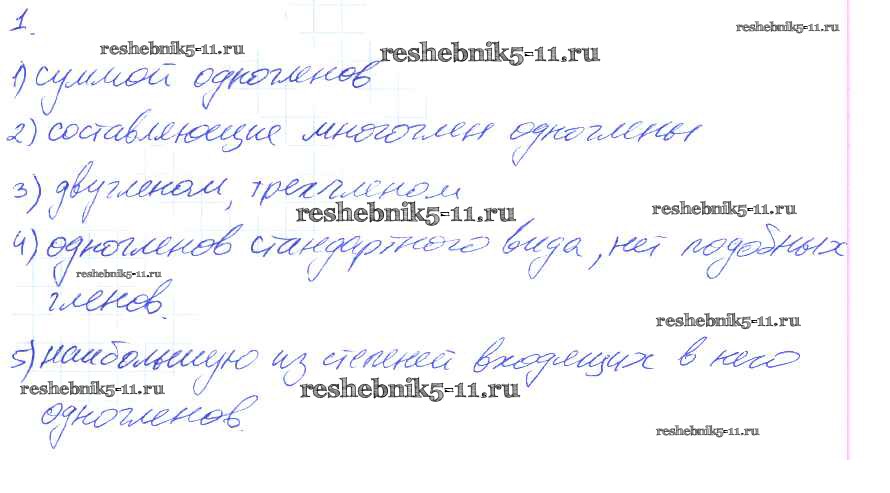 1.
reshebnik5-11.ru
reshebnik5-11.ru
reshebnik5-11.ru
1) суммой одночленов
2) составляющие многочлен одночлены
3) двучленом, трехчленом
reshebnik5-11.ru
reshebnik5-11.ru
4) одночленов стандартного вида, нет подобных
reshebnik5-11.ru
членов.
reshebnik5-11.ru
5) наибольшую из степеней входящих в него
reshebnik5-11.ru
reshebnik5-11.ru
одночленов.
reshebnik5-11.ru